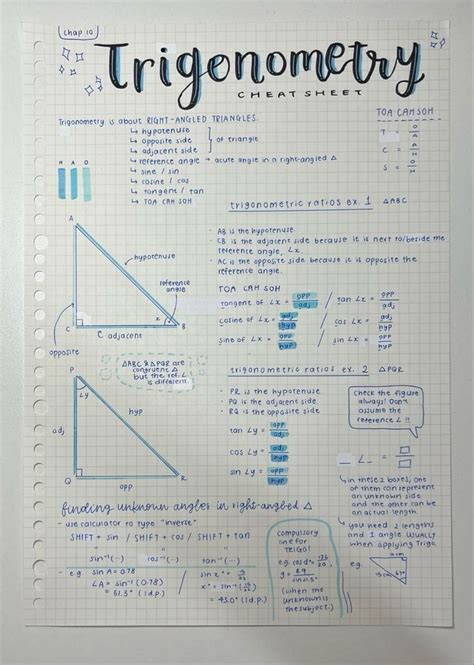 Chap 10
Trigonometry
CHEAT SHEET
Trigonometry is about RIGHT-ANGLED TRIANGLES.
↳ hypotenuse
↳ opposite side } of triangle
↳ adjacent side
↳ reference angle → acute angle in a right-angled △
↳ sine / sin
↳ cosine / cos
↳ tangent / tan
↳ TOA CAH SOH
TOA CAH SOH
T = O/A
C = A/H
S = O/H
H A O
trigonometric ratios ex. 1 △ABC
· AB is the hypotenuse.
· CB is the adjacent side because it is next to/beside the
reference angle, ∠x.
· AC is the opposite side because it is opposite the
reference angle.
TOA CAH SOH
tangent of ∠x = opp/adj / tan ∠x = opp/adj
cosine of ∠x = adj/hyp / cos ∠x = adj/hyp
sine of ∠x = opp/hyp / sin ∠x = opp/hyp
A
hypotenuse
reference
angle
x
C
B
adjacent
opposite
△ABC & △PQR are
congruent △
but the ref. ∠
is different.
trigonometric ratios ex. 2 △PQR
· PR is the hypotenuse
· PQ is the adjacent side
· RQ is the opposite side
tan ∠y = opp/adj
cos ∠y = adj/hyp
sin ∠y = opp/hyp
P
∠y
hyp
adj
Q
R
opp
Check the figure
always! Don't
assume the
reference ∠ !!
_ ∠_ = □/□
↳ in these 2 boxes, one
of them can represent
an unknown side
and the other can
be an actual length.
↳ you need 2 lengths
and 1 angle usually
when applying Trigo.
e.g.
finding unknown angles in right-angled △
- use calculator to type "inverse"
SHIFT + sin / SHIFT + cos / SHIFT + tan
sin⁻¹(...) cos⁻¹(...) tan⁻¹(...)
- e.g. sin A = 0.78
∠A = sin⁻¹(0.78)
= 51.3° (1 d.p.)
= 43.0° (1 d.p.)
compulsory
line for
TRIGO!
(when the
unknown is
the subject.)